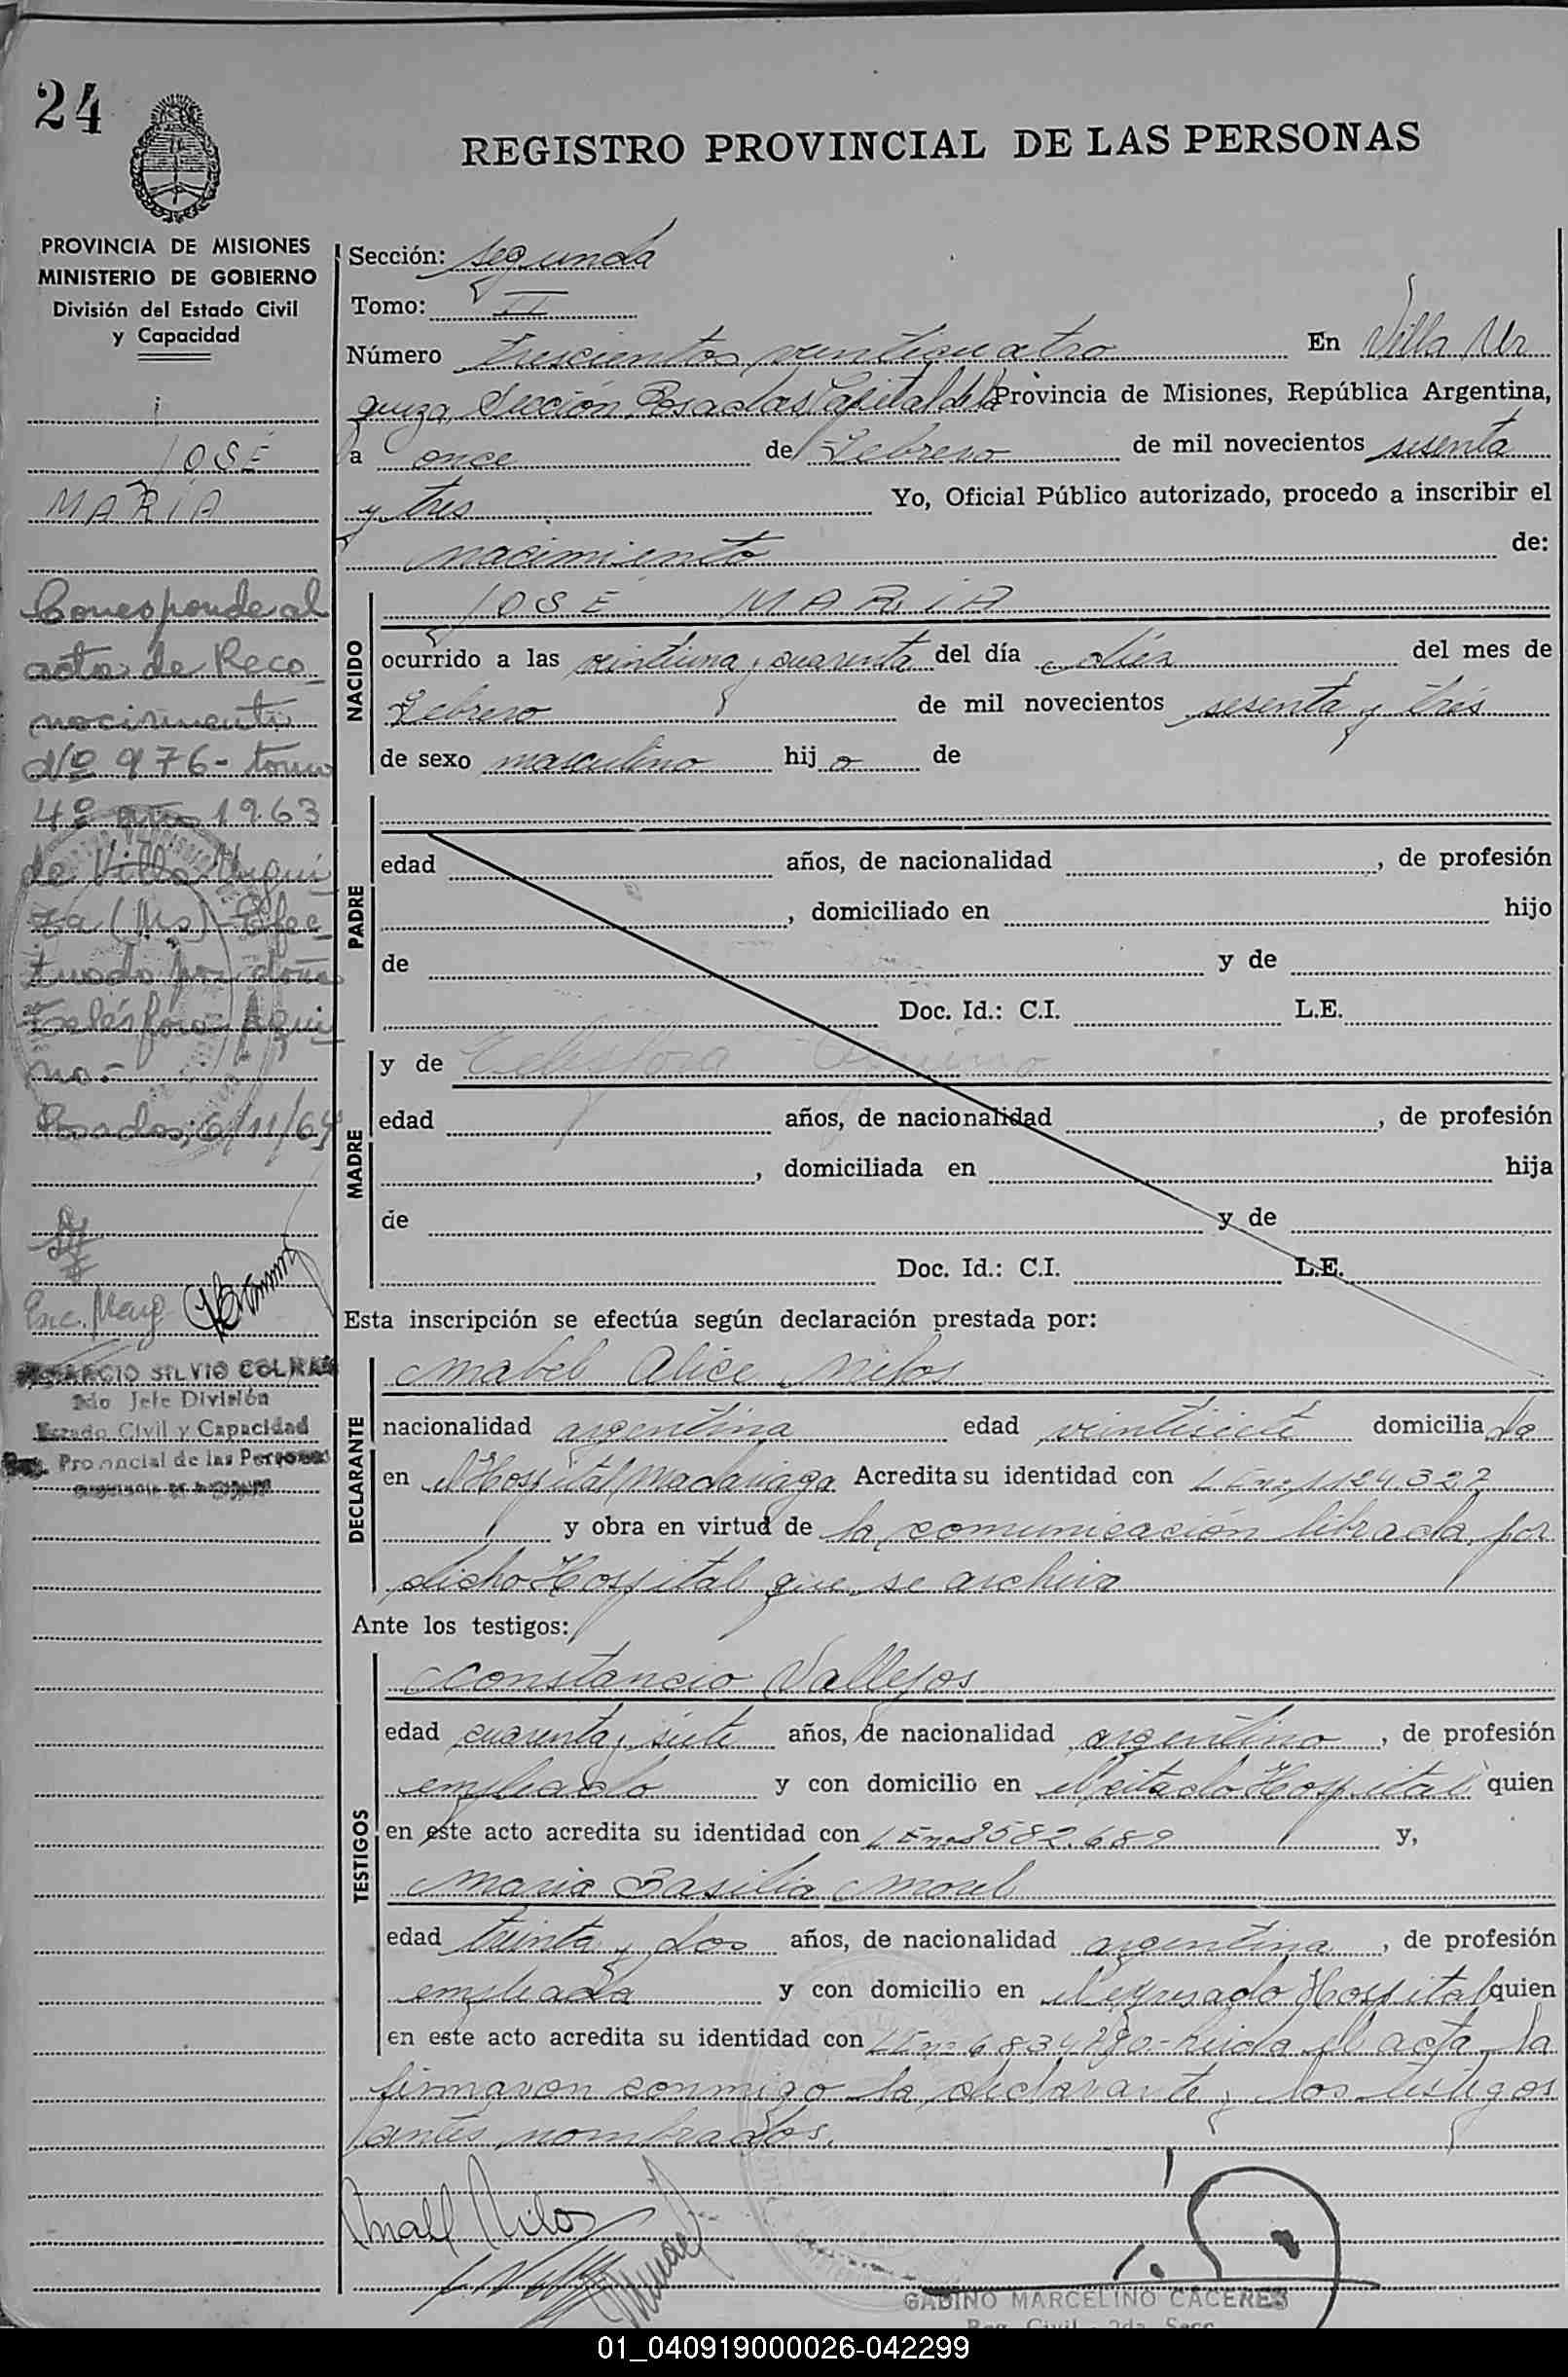 24
REGISTRO PROVINCIAL DE LAS PERSONAS
PROVINCIA DE MISIONES
MINISTERIO DE GOBIERNO
División del Estado Civil
y Capacidad
JOSÉ
MARIA
Corresponde al
acta de Reco-
nocimiento
Nº 976- tomo
4º año 1963
de Villa Urqui-
za (Ms) Efec-
tuado por doña
Telésfora Aqui-
no.-
Posadas, 6/11/69
Enc. Marg.
SILVIO COLMAN
2do Jefe División
Estado Civil y Capacidad
Reg. Provincial de las Personas
Sección: segunda
Tomo: II
Número trescientos veinticuatro En Villa Ur
quiza, Sección Posadas Capital de la Provincia de Misiones, República Argentina,
a once de Febrero de mil novecientos sesenta
y tres Yo, Oficial Público autorizado, procedo a inscribir el
nacimiento de:
NACIDO
JOSÉ MARIA
ocurrido a las veintiuna y cuarenta del día diez del mes de
Febrero de mil novecientos sesenta y tres
de sexo masculino hijo de
PADRE
edad años, de nacionalidad , de profesión
, domiciliado en hijo
de y de
Doc. Id.: C.I. L.E.
MADRE
y de Telésfora Aquino
edad años, de nacionalidad , de profesión
, domiciliada en hija
de y de
Doc. Id.: C.I. L.E.
Esta inscripción se efectúa según declaración prestada por:
DECLARANTE
Mabel Alice Milos
nacionalidad argentina edad veintisiete domiciliada
en el Hospital Madariaga Acredita su identidad con L Eno 1124.327
y obra en virtud de la comunicación librada por
dicho Hospital que se archiva
Ante los testigos:
TESTIGOS
Constancio Vallejos
edad cuarenta y siete años, de nacionalidad argentino, de profesión
empleado y con domicilio en el citado Hospital quien
en este acto acredita su identidad con L Eno 2582.689 y,
Maria Basilia Morel
edad treinta y dos años, de nacionalidad argentina, de profesión
empleada y con domicilio en el expresado Hospital quien
en este acto acredita su identidad con L Eno 6834280- leida el acta, la
firmaron conmigo la declarante y los testigos
antes nombrados.
Mabel Milos
GABINO MARCELINO CACERES
Reg. Civil - 2da Secc.
01_040919000026-042299